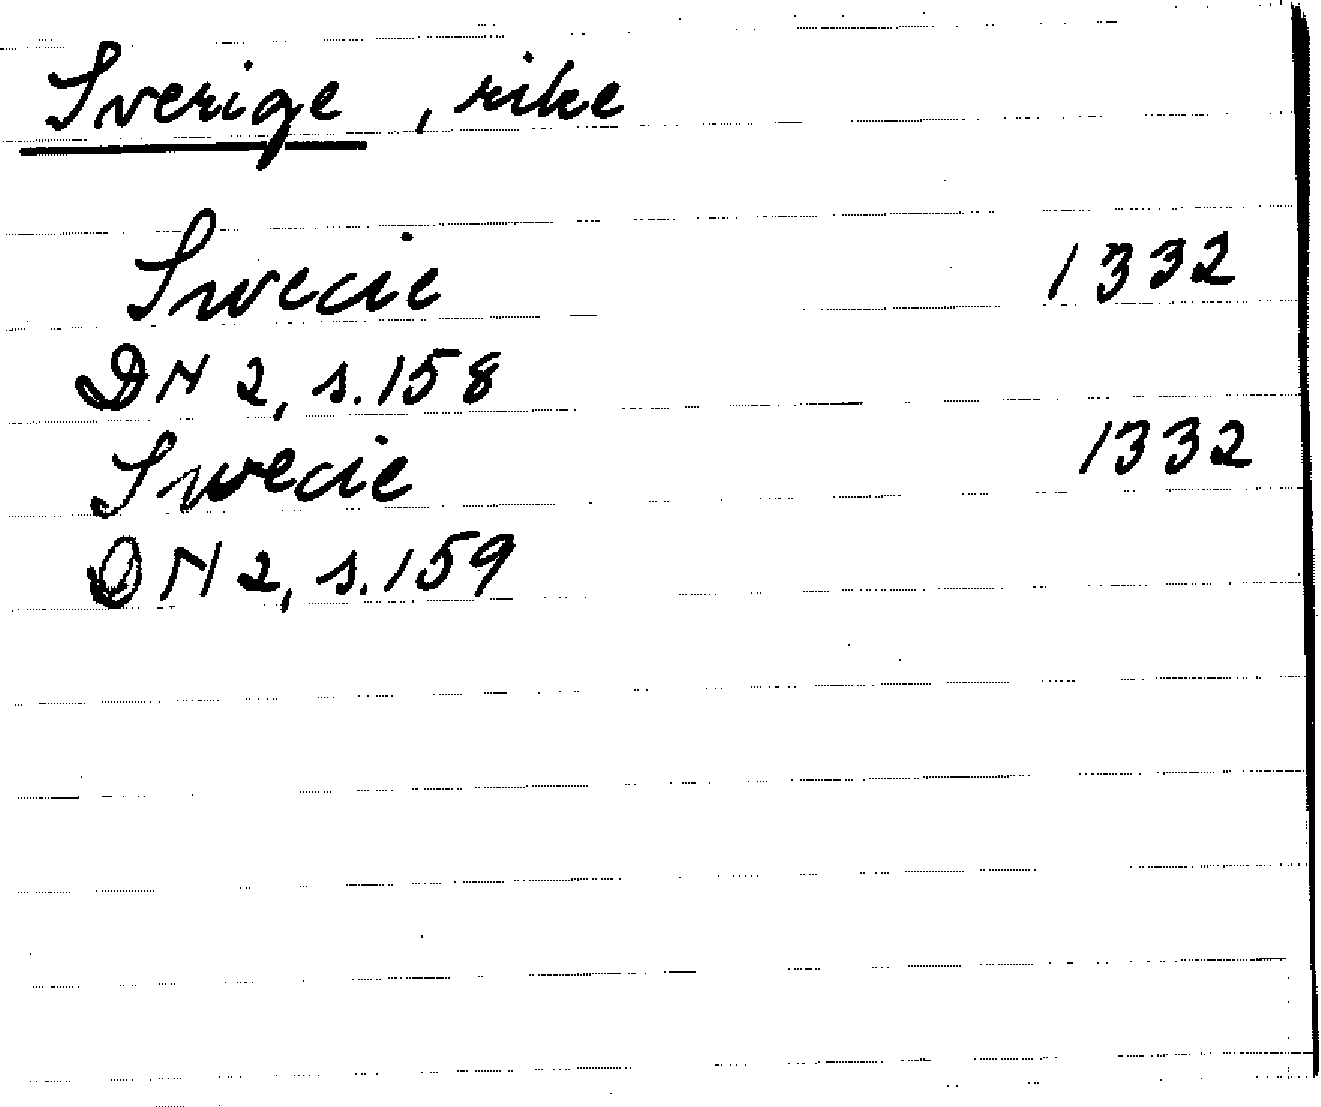 Sverige, rike
Swecie 1332
DN 2, s. 158
Swecie 1332
DN 2, s. 159